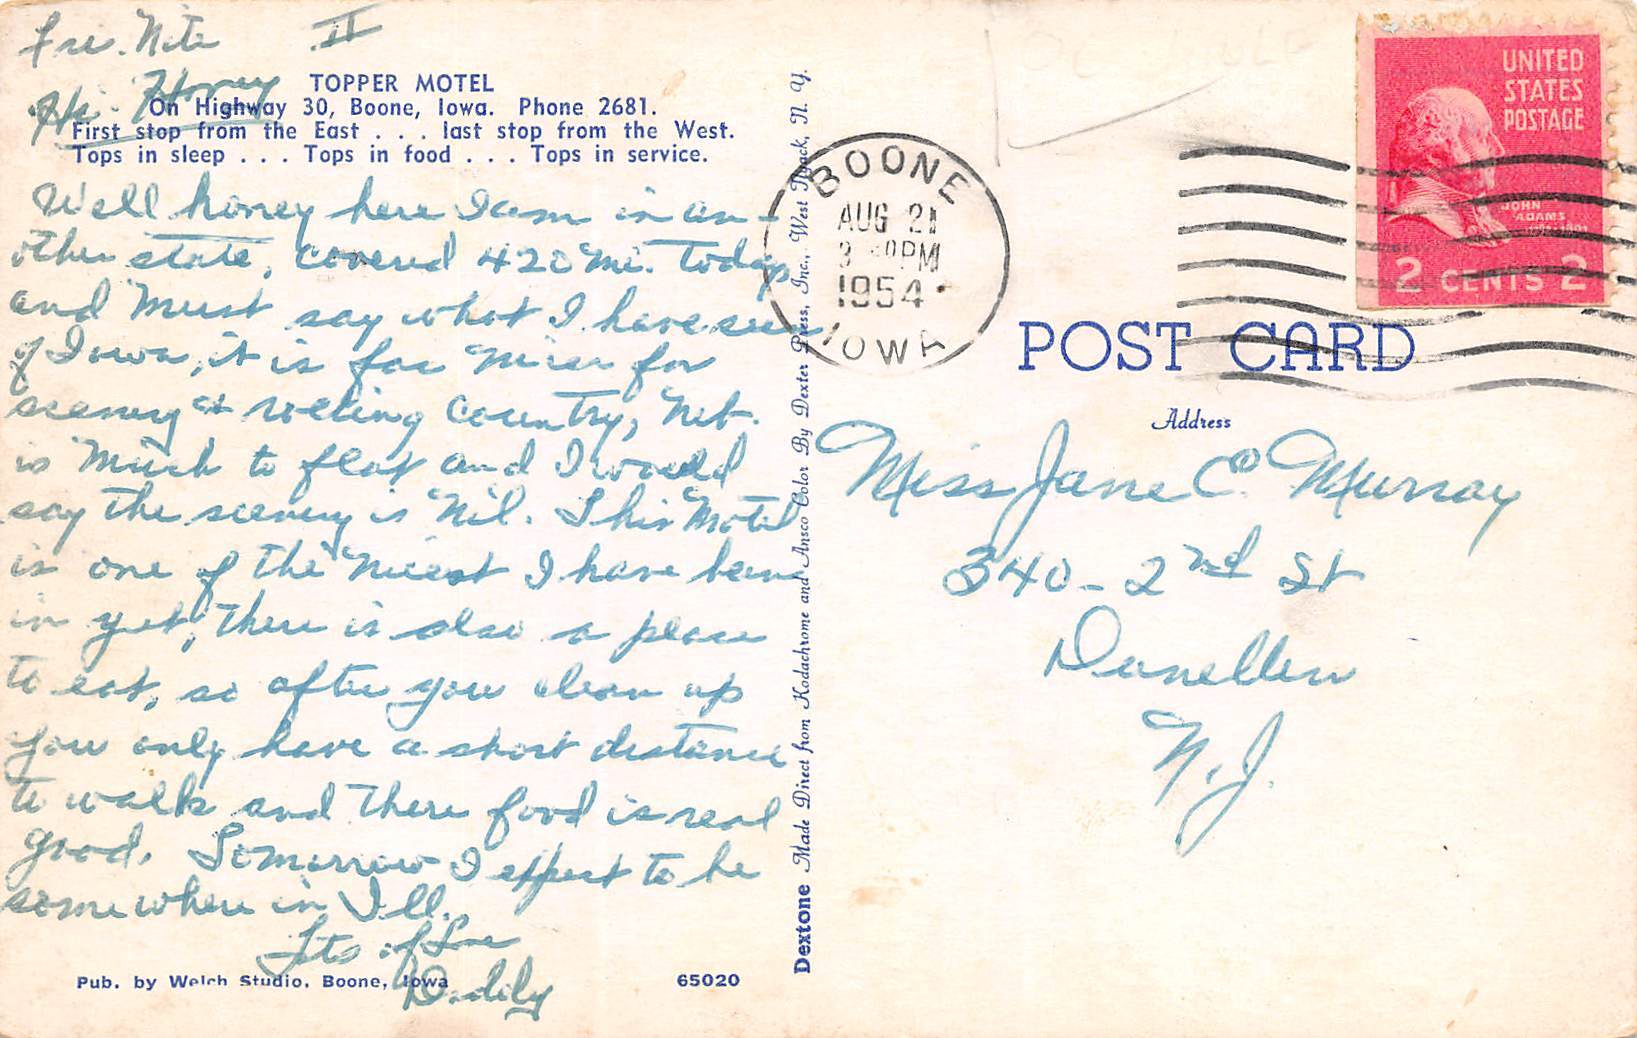 Fri. Nite II
Hi Honey
TOPPER MOTEL
On Highway 30, Boone, Iowa. Phone 2681.
First stop from the East . . . last stop from the West.
Tops in sleep . . . Tops in food . . . Tops in service.
Well honey here I am in an-
other state, covered 420 mi. today
and must say what I have seen
of Iowa, it is far nicer for
scenery & rolling country, Neb.
is much to flat and I would
say the scenery is nil. This Motel
is one of the nicest I have been
in yet, there is also a place
to eat, so after you clean up
you only have a short distance
to walk and there food is real
good. Tomorrow I expect to be
somewhere in Ill.
Lots of Love
Daddy
Pub. by Welch Studio, Boone, Iowa 65020
Dextone Made Direct from Kodachrome and Ansco Color By Dexter Press, Inc., West Nyack, N. Y.
BOONE
AUG 21
PM
1954
IOWA
UNITED
STATES
POSTAGE
JOHN
ADAMS
2 CENTS 2
POST CARD
Address
Miss Jane C. Murray
340-2nd St
Dunellen
N.J.